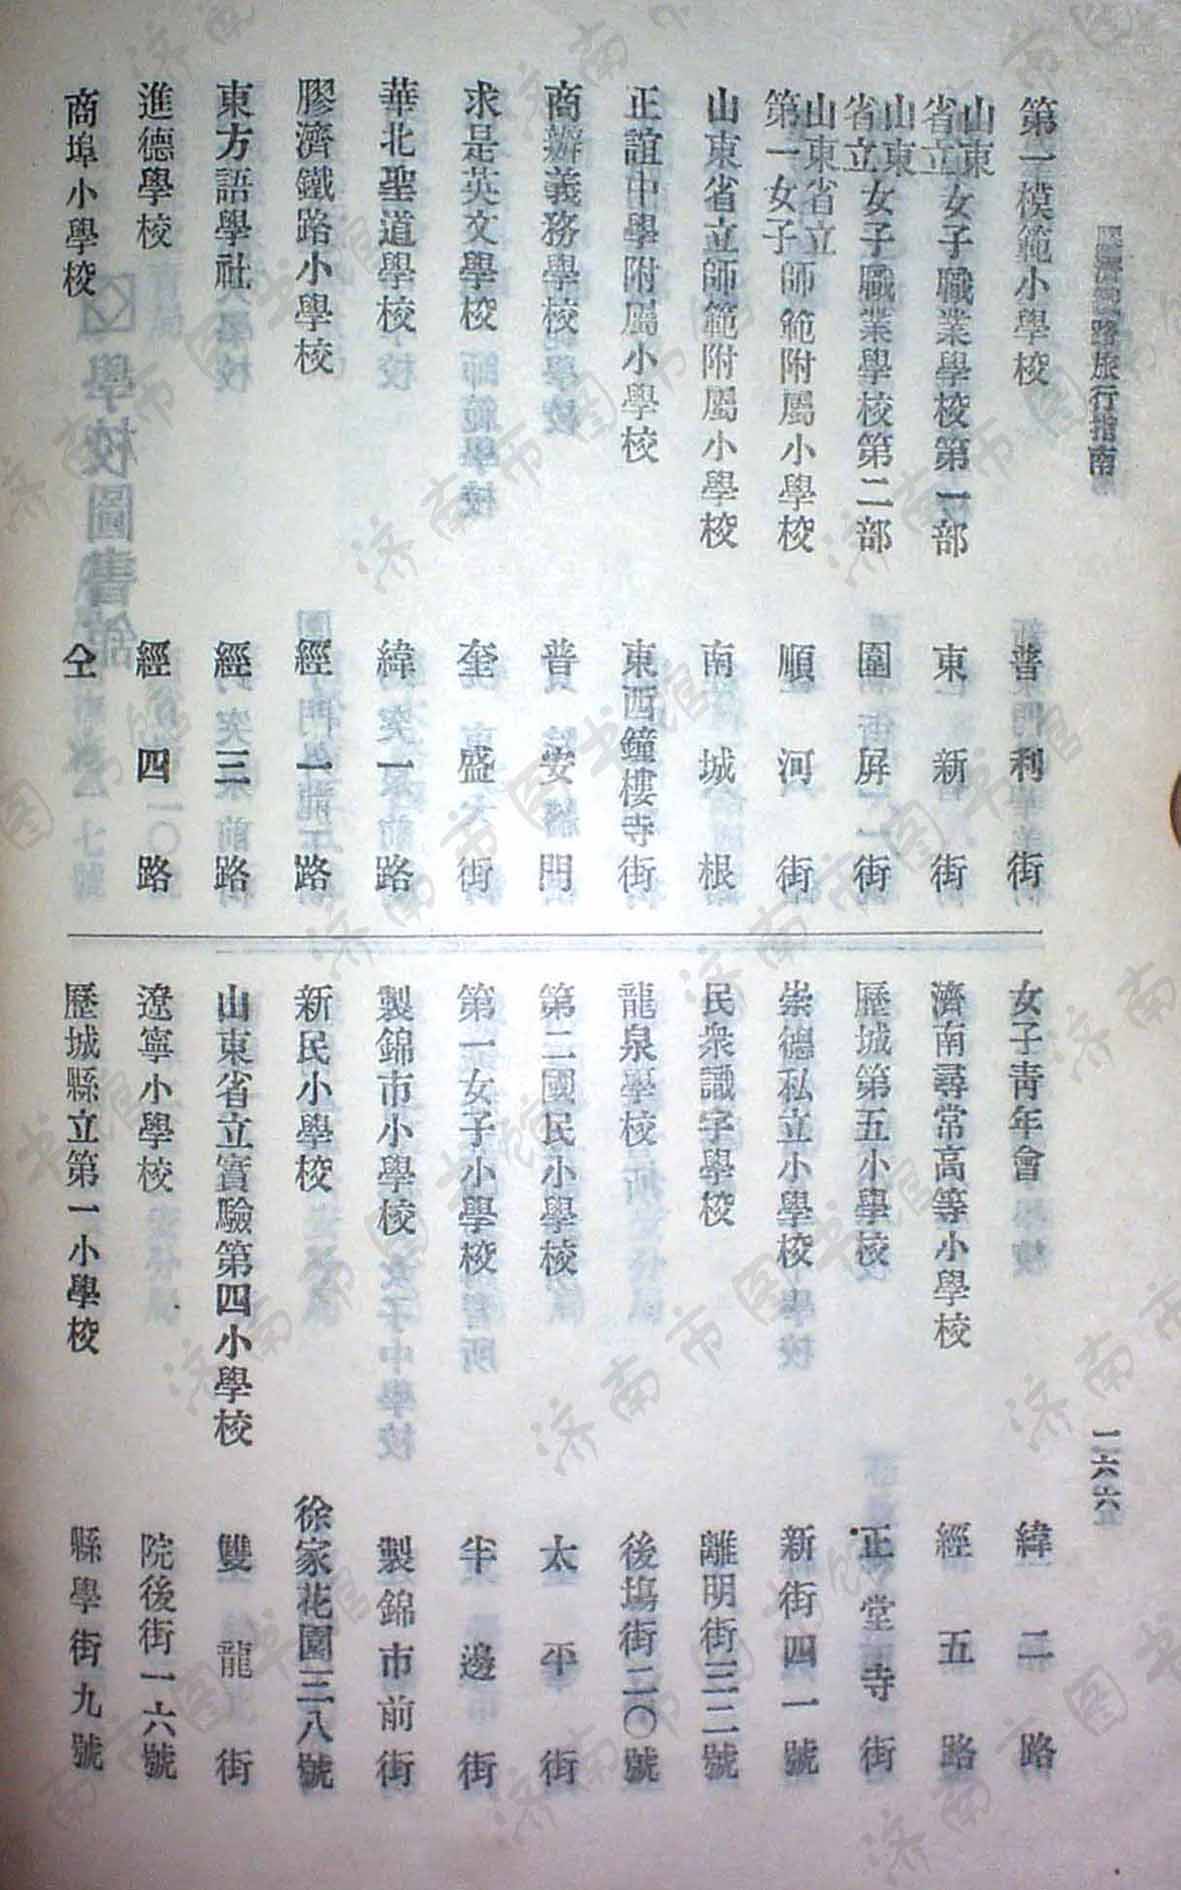 膠濟鐵路旅行指南
一六六
第一模範小學校　普利街
山東省立女子職業學校第一部　東新街
山東省立女子職業學校第二部　圍屏街
山東省立第一女子師範附屬小學校　順河街
山東省立師範附屬小學校　南城根
正誼中學附屬小學校　東西鐘樓寺街
商辦義務學校　普安門
求是英文學校　奎盛街
華北聖道學校　緯一路
膠濟鐵路小學校　經一路
東方語學社　經三路
進德學校　經四路
商埠小學校　仝
女子青年會　緯二路
濟南尋常高等小學校　經五路
歷城第五小學校　正堂寺街
崇德私立小學校　新街四一號
民衆識字學校　離明街三二號
龍泉學校　後塲街二〇號
第二國民小學校　太平街
第一女子小學校　半邊街
製錦市小學校　製錦市前街
新民小學校　徐家花園三八號
山東省立實驗第四小學校　雙龍街
遼寧小學校　院後街一六號
歷城縣立第一小學校　縣學街九號
济南市图书馆